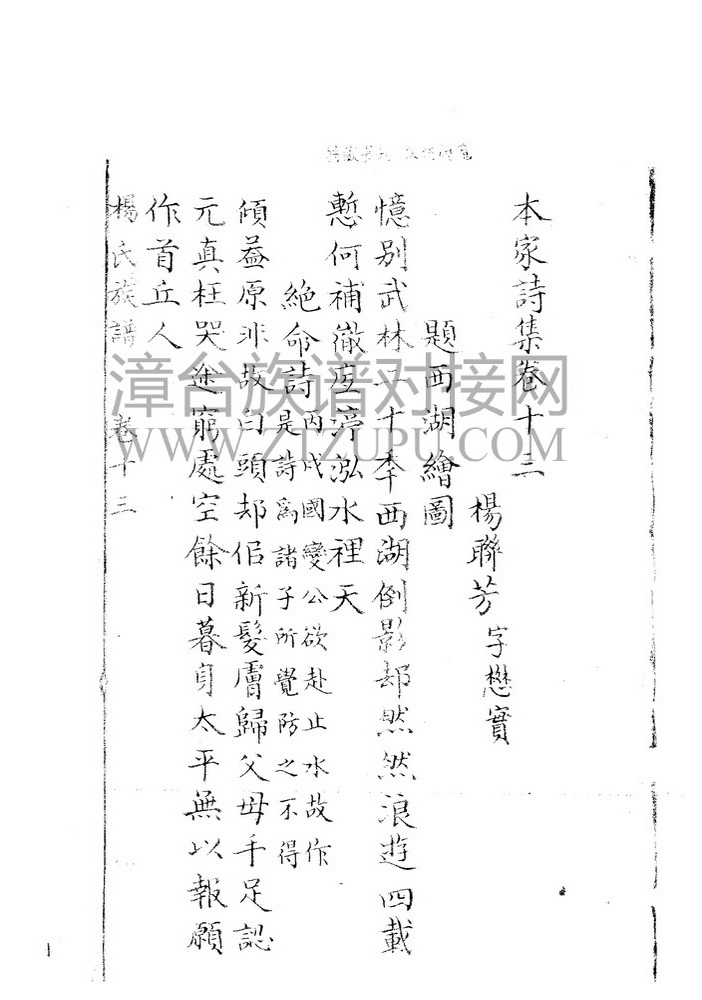 本家詩集卷十三
楊聯芳字懋實
題西湖繪圖
憶别武林二十秊西湖倒影却然然浪遊四載
慙何補澈底渟泓水裡天
絶命詩
丙戌國變公欲赴止水故作
是詩爲諸子所覺防之不得
傾葢原非故白頭却佀新髮膚歸父母手足認
元真枉哭途窮處空餘日暮身太平無以報願
作首丘人
楊氏族譜 卷十三
1
漳台族谱对接网
WWW.ZTZUPU.COM